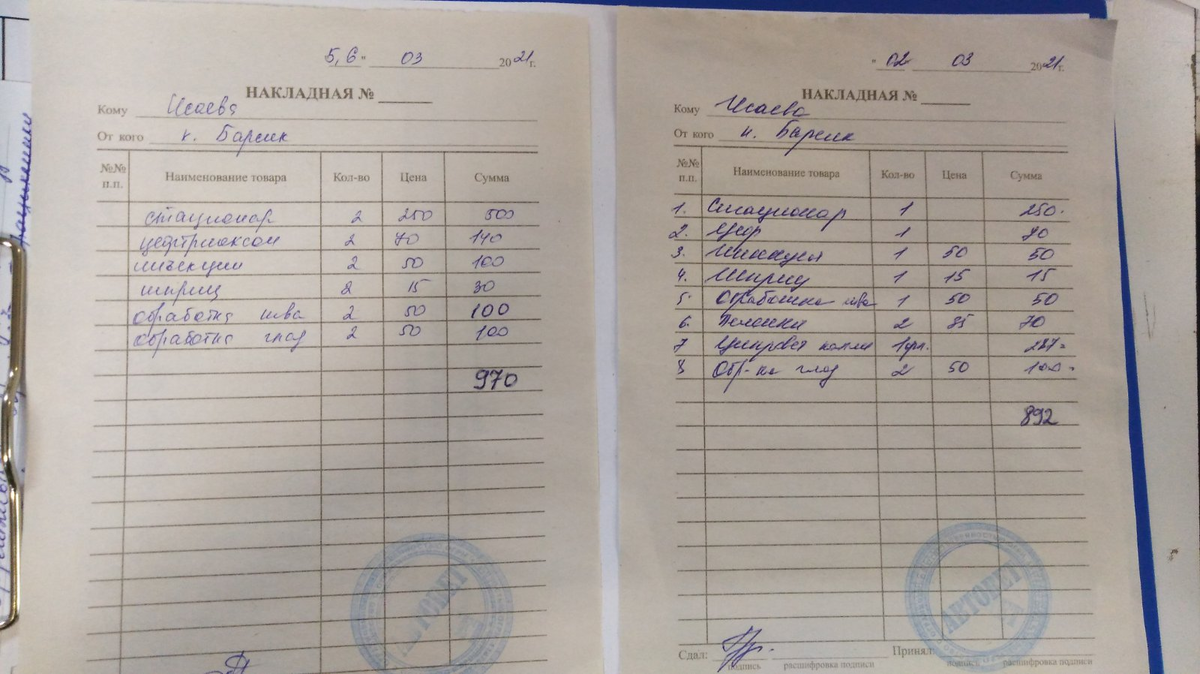 5,6 " 03 2021г.
НАКЛАДНАЯ №
Кому Исаева
От кого к. Барсик
№№ п.п. Наименование товара Кол-во Цена Сумма
стационар 2 250 500
цефтриаксон 2 70 140
инъекции 2 50 100
шприц 2 15 30
обработка шва 2 50 100
обработка глаз 2 50 100
970
АВТОВЕТ
" 02 " 03 2021г.
НАКЛАДНАЯ №
Кому Исаева
От кого к. Барсик
№№ п.п. Наименование товара Кол-во Цена Сумма
1. Стационар 1 250.
2. Цеф 1 70
3. Инъекция 1 50 50
4. Шприц 1 15 15
5. Обработка шва 1 50 50
6. Пеленки 2 85 70
7 Ципровет капли 1фл. 287=
8 Обр-ка глаз 2 50 100=
892
АВТОВЕТ
Сдал: Принял:
подпись расшифровка подписи подпись расшифровка подписи